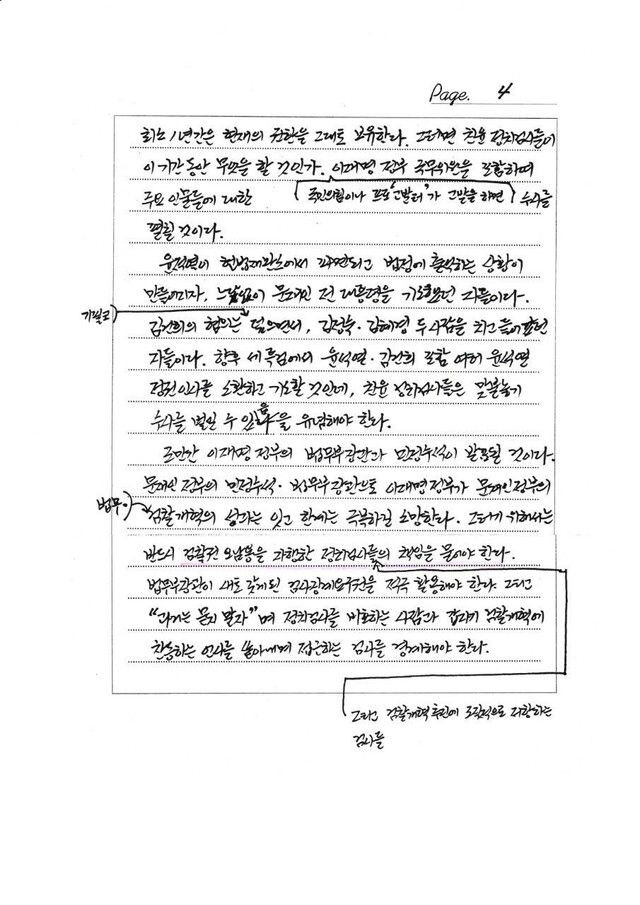 Page. 4
최소 1년간은 현재의 권한을 그대로 보유한다. 그러면 친윤 정치검사들이
이 기간동안 무엇을 할 것인가. 이재명 정부 국무위원을 포함하여
주요 인물들에 대한 (국민의힘이나 프로'고발러'가 고발을 하면) 수사를
펼칠 것이다.
윤석열이 헌법재판소에서 파면되고 법정에 출석하는 상황이
만들어지자, 느닷없이 문재인 전 대통령을 기소했던 자들이다.
기필코
김건희의 혐의는 덮으면서, 김정숙·김혜경 두 사람을 치고 들어갔던
자들이다. 향후 세 특검에서 윤석열·김건희 포함 여러 윤석열
정권 인사를 소환하고 기소할 것인데, 친윤 정치검사들은 맞불놓기
수사를 벌일 수 있음을 유념해야 한다.
조만간 이재명 정부의 법무부장관과 민정수석이 발표될 것이다.
문재인 정부의 민정수석·법무부장관으로 이재명 정부가 문재인 정부의
법무·
검찰개혁의 성과는 잇고 한계는 극복하길 소망한다. 그러기 위해서는
반드시 검찰권 오남용을 자행한 정치검사들의 책임을 물어야 한다.
법무부장관이 새로 갖게 된 검사징계요구권을 적극 활용해야 한다. 그리고
"과거는 묻지 말자"며 정치검사를 비호하는 사람과 갑자기 검찰개혁에
찬동하는 인사를 쏟아내며 접근하는 검사를 경계해야 한다.
그리고 검찰개혁 추진에 조직적으로 저항하는
검사들